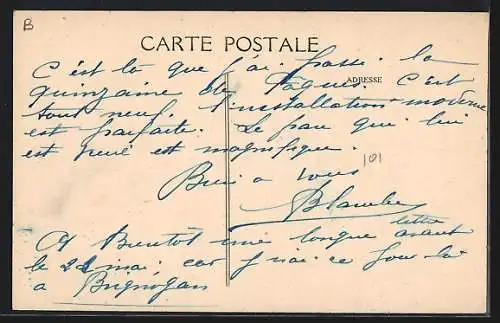 B
CARTE POSTALE
ADRESSE
C'est là que j'ai passé la
quinzaine de Pâques. C'est
tout neuf. l'installation moderne
est parfaite. Le parc qui lui
est est magnifique.
101
à vous
A Bientôt une longue lettre avant
le 22 mai, car j'irai ce jour là
a Brignogan